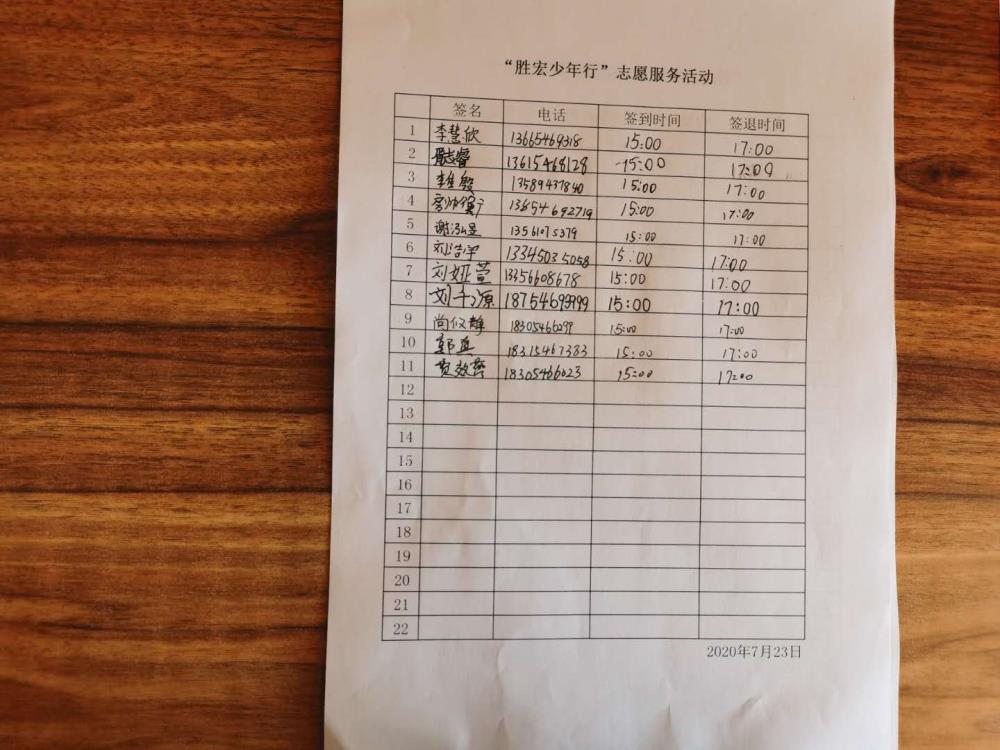 “胜宏少年行”志愿服务活动
签名 电话 签到时间 签退时间
1 李慧欣 13665469318 15:00 17:00
2 13615468128 15:00 17:00
3 13589437840 15:00 17:00
4 13654692719 15:00 17:00
5 谢泓昱 13561075379 15:00 17:00
6 刘浩洋 13345035058 15:00 17:00
7 刘娅萱 13356608678 15:00 17:00
8 刘千源 18754699799 15:00 17:00
9 尚仪静 18305466299 15:00 17:00
10 郭真 18315467383 15:00 17:00
11 18305466023 15:00 17:00
12
13
14
15
16
17
18
19
20
21
22
2020年7月23日